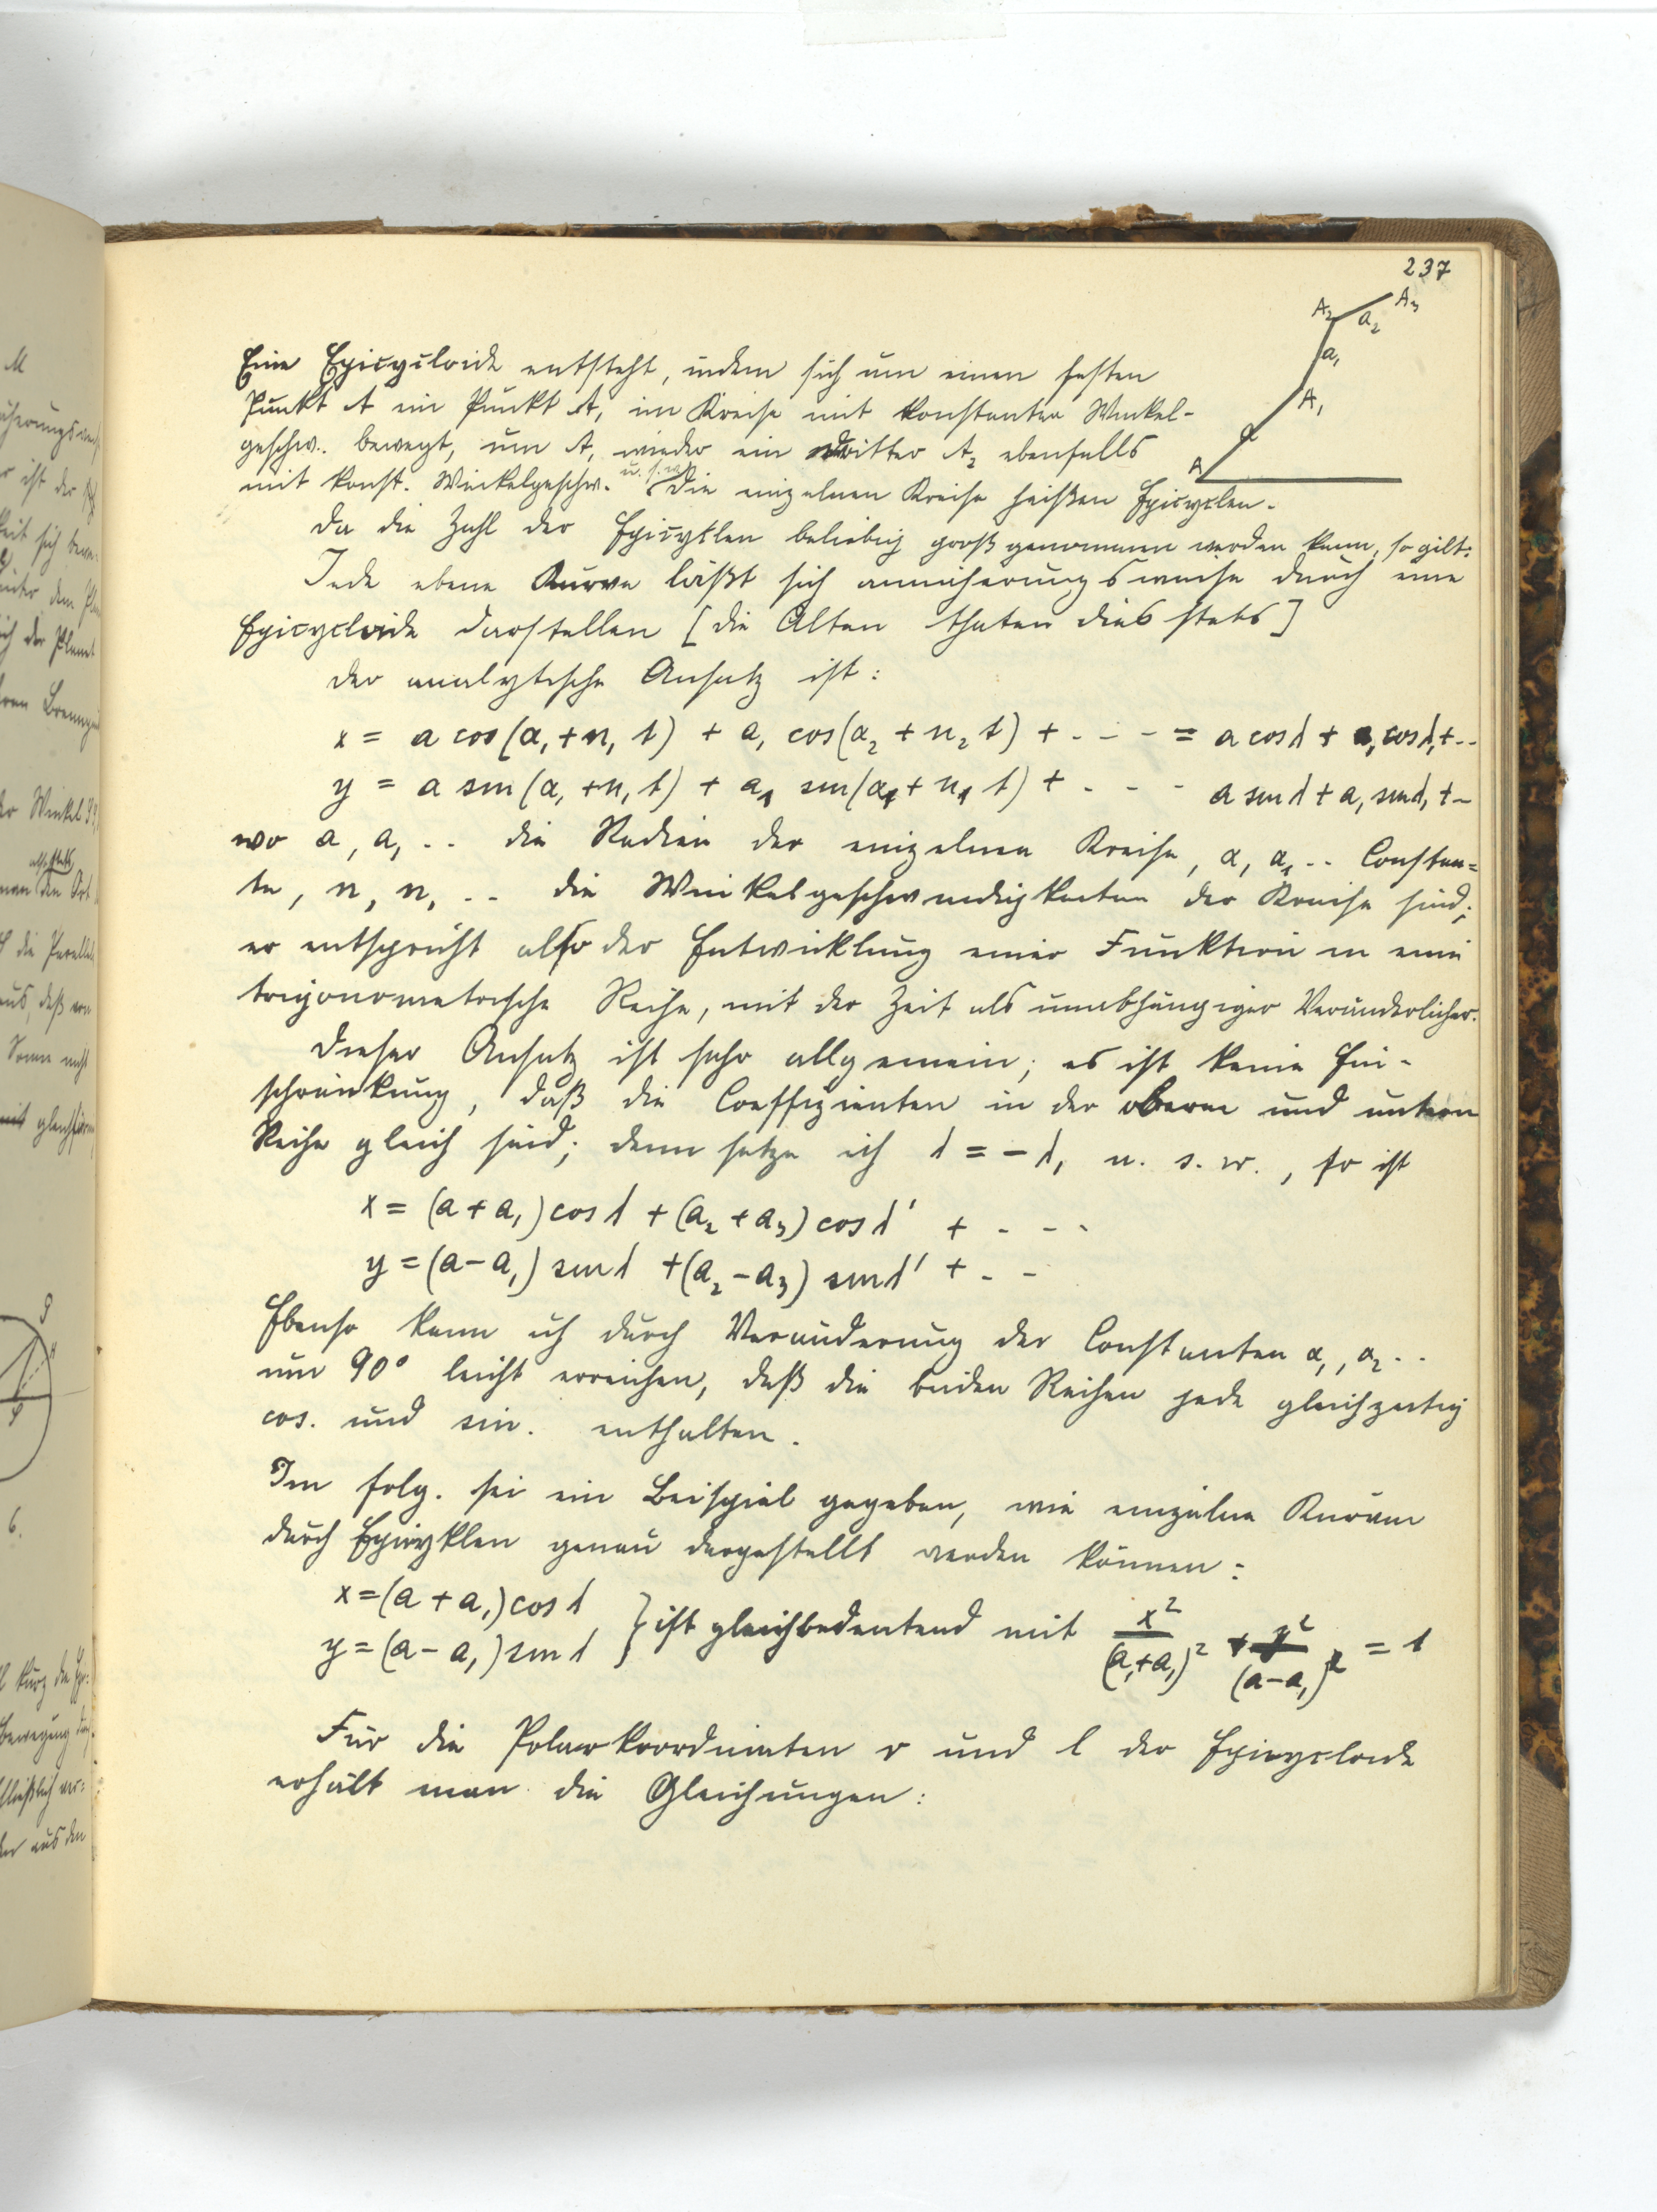 237
A₂ A₃
a₂
a₁
A₁
a
A
Eine Epicycloide entsteht, indem sich um einen festen
Punkt A ein Punkt A₁ im Kreise mit konstanter Winkel-
geschw. bewegt, um A₁ wieder ein dritter A₂ ebenfalls
mit konst. Winkelgeschw. u.s.w. Die einzelnen Kreise heißen Epicyclen.
Da die Zahl der Epicyklen beliebig groß genommen werden kann, so gilt:
Jede ebene Kurve läßt sich annäherungsweise durch eine
Epicycloide darstellen [die Alten thaten dies stets]
Der analytische Ansatz ist:
x = a cos(α₁ + n₁ t) + a₁ cos(α₂ + n₂ t) + - - - = a cos λ + a₁ cos λ₁ + - -
y = a sin(α₁ + n₁ t) + a₁ sin(α₁ + n₁ t) + - - - a sin λ + a₁ sin λ₁ + -
wo a, a₁ - - die Radien der einzelnen Kreise, α, α₁ - - Constan=
te, n, n₁ - - die Winkelgeschwindigkeiten der Kreise sind;
er entspricht also der Entwicklung einer Funktion in eine
trigonometrische Reihe, mit der Zeit als unabhängiger Veränderlicher.
Dieser Ansatz ist sehr allgemein; es ist keine Ein-
schränkung, daß die Coeffizienten in der oberen und untern
Reihe gleich sind; denn setze ich λ = - λ₁ u. s. w., so ist
x = (a + a₁) cos λ + (a₂ + a₃) cos λ' + - - -
y = (a - a₁) sin λ + (a₂ - a₃) sin λ' + - -
Ebenso kann ich durch Veränderung der Constanten α₁, α₂ - -
um 90° leicht erreichen, daß die beiden Reihen jede gleichzeitig
cos. und sin. enthalten.
Im folg. sei ein Beispiel gegeben, wie einzelne Kurven
durch Epicyklen genau dargestellt werden können:
x = (a + a₁) cos λ
y = (a - a₁) sin λ } ist gleichbedeutend mit x²/(a + a₁)² + y²/(a - a₁)² = 1
Für die Polarkoordinaten r und l der Epicycloide
erhält man die Gleichungen: